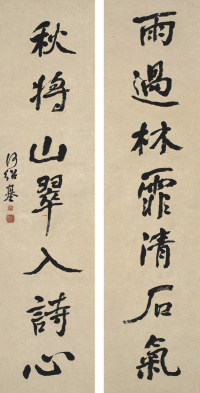 雨過林霏清石氣
秋將山翠入詩心
何紹基